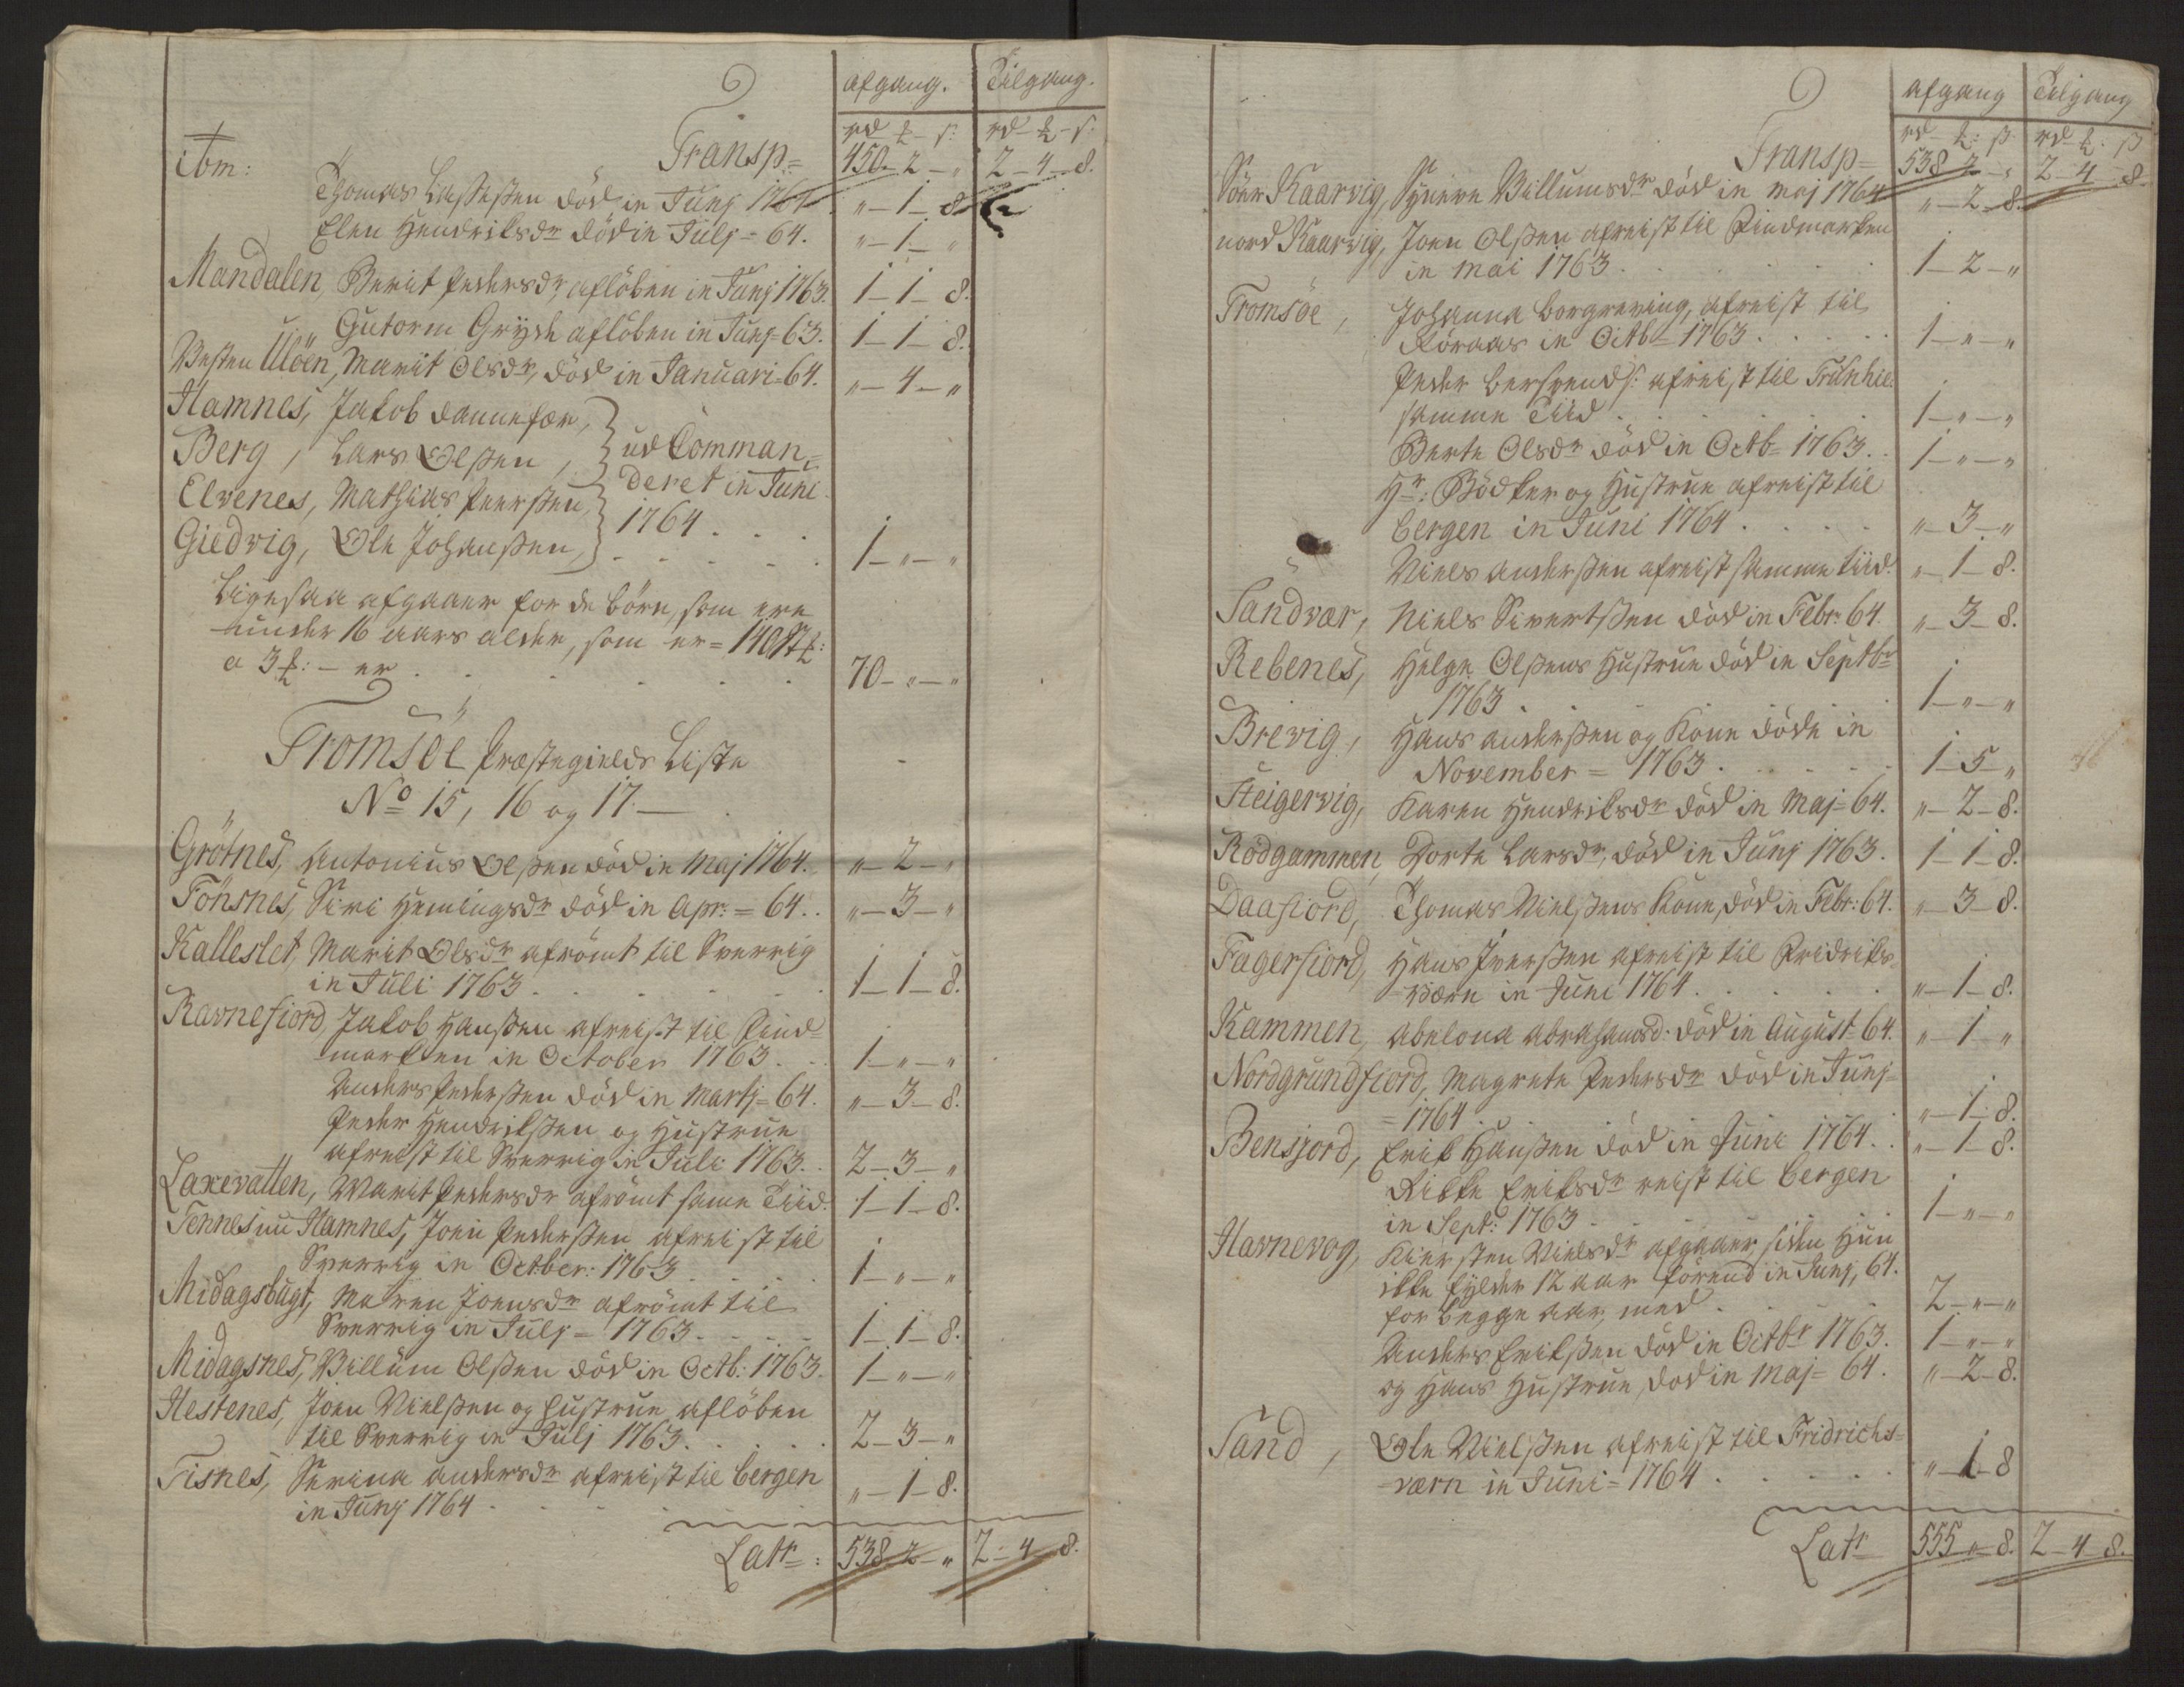 afgang. Tilgang.
rd ₻ ß: rd ₻ ß:
Transp= 450-2-„ 2-4-8.
ibm: Thomas Lassesen död in Junj 1764 „-1-8
Elen Hendriksdr död in Julj=64. „-1-„
Mandalen, Berit Pedersdr, aflöben in Junj 1763. 1-1-8.
Gutorm Grÿsk aflöben in Junj=63. 1-1-8.
Vesten Ulöen, Marit Olsdr, död in Januari=64. „-4-„
Hamnes, Jakob Dannefær,
Berg, Lars Olssen, ud Comman=
Elvenes, Mathias Peerssen, deret in Juni
Giedvig, Ole Johanssen, 1764 . . . 1-„-„
Ligesaa afgaaer for de börn, som ere
under 16 aars alder, som er=140 St:
a 3 ₻: - er . . . 70-„-„
Tromsöe Præstegields Liste
No 15, 16 og 17.
Grötnes, Antonius Olssen död in Maj 1764. „-2-„
Tönsnes, Siri Hemingsdr död in Apr:=64. . „-3-„
Kalleslet, Marit Olsdr afrömt til Sverrig
in Juli 1763 . . . 1-1-8.
Ravnefiord, Jakob Hanssen afreist til Find=
marken in October 1763 . . 1-„-„
Anders Pederssen död in Martj=64. „-3-8.
Peder Hendrikssen og Hustrue
afreist til Sverrig in Juli 1763. . 2-3-„
Laxevatten, Marit Pedersdr afrömt same Tiid. 1-1-8.
Tennes nu Hamnes, Joen Pederssen afreist til
Sverrig in Octber: 1763 . . . 1-„-„
Midagsbugt, Maren Joensdr afrömt til
Sverrig in Julj=1763 . . . 1-1-8.
Midagsnes, Villum Olssen död in Octb: 1763. 1-„-„
Hestenes, Joen Nielssen og Hustrue aflöben
til Sverrig in Julj 1763. . . 2-3-„
Tisnes, Serina Andersdr afreist til Bergen
in Junj 1764 . . . „-1-8.
Latr: 538-2-„ 2-4-8.
afgang Tilgang
rd ₻: ß rd ₻: ß
Transp= 538-2-„ 2-4-8.
Sönr Kaarvig, Synnve Villumsdr död in Maj 1764 „-2-8.
nord Kaarvig, Joen Olssen afreist til Findmarken
in Mai 1763 . . . 1-2-„
Tromsöe, Johanna Borgreving, afreist til
Röraas in Octb=1763 . . . 1-„-„
Peder afreist til Trunhie:
samme Tiid . . . 1-„-„
Berte Olsdr död in Octb=1763. . 1-„-„
Hr: Bödker og Hustrue afreist til
Bergen in Juni 1764 . . . „-3-„
Niels Anderssen afreist samme tiid. „-1-8.
Sandvær, Niels Sivertssen död in Febr: 64. „-3-8.
Rebenes, Helge Olssens Hustrue död in Septbr
1763 . . . 1-„-„
Brevig, Hans Anderssen og Kone döde in
November=1763 . . . 1-5-„
Steigervig, Karen Hendriksdr död in Maj=64. „-2-8.
Rödgammen, Dorte Larsdr, död in Junj 1763. 1-1-8.
Daafiord, Thomas Nielssens Kone, död in Febr: 64. „-3-8.
Fagerfiord, Hans Iverssen afreist til Fridriks=
værn in Juni 1764 . . . „-1-8.
Kammen, Abelona Abrahamsd: död in August=64. „-1-„
Nordgrundfiord, Magrete Pedersdr död in Junj=
=1764 . . . „-1-8.
Bensjord, Erik Hanssen död in Juni 1764. . „-1-8.
Rikke Eriksdr reist til Bergen
in Sept: 1763 . . . 1-„-„
Havnevog, Kiersten Nielsdr afgaaer, siden Hun
ikke fylder 12 aar förend in Junj, 64.
for begge aar, med . . . 2-„-„
Anders Erikssen död in Octbr 1763. 1-„-„
og Hans Hustrue, död in Maj=64. „-2-8.
Sand, Ole Nielssen afreist til Fridrichs=
værn in Juni=1764 . . . „-1-8
Latr 555-„-8. 2-4-8.